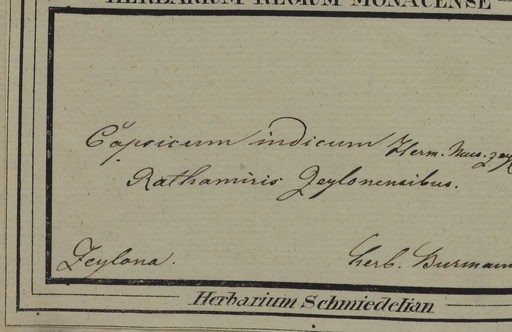 HERBARIUM REGIUM MONACENSE
Capsicum indicum Herm. Mus. zeyl
Rathamiris Zeylonensibus.
Zeylona.
herb. Burmann
Herbarium Schmiedelian